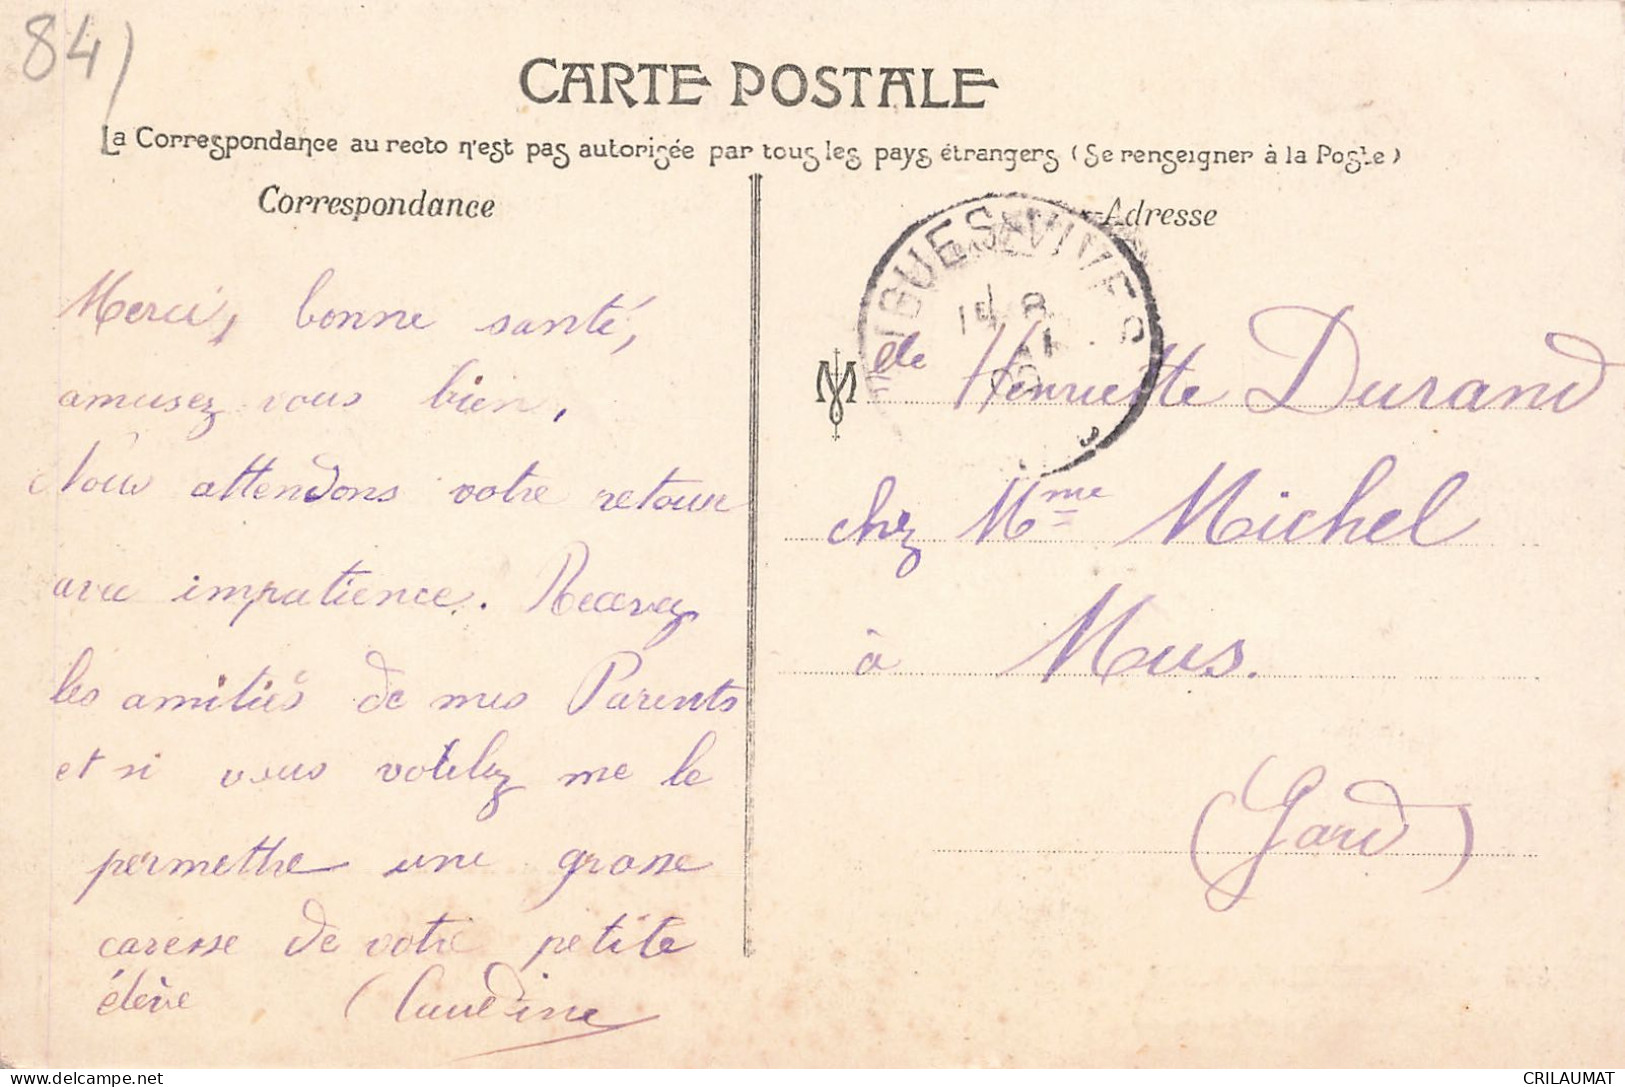 84)
CARTE POSTALE
La Correspondance au recto n'est pas autorisée par tous les pays étrangers (Se renseigner à la Poste)
Correspondance
Merci, bonne santé,
amusez vous bien.
Nous attendons votre retour
avec impatience. Recevez
les amitiés de mes Parents
et si vous voulez me le
permettre une grosse
caresse de votre petite
élève Claudine
Adresse
AIGUES-VIVES
elle Henriette Durand
chez Mme Michel
à Mus.
(Gard)
CRILAUMAT